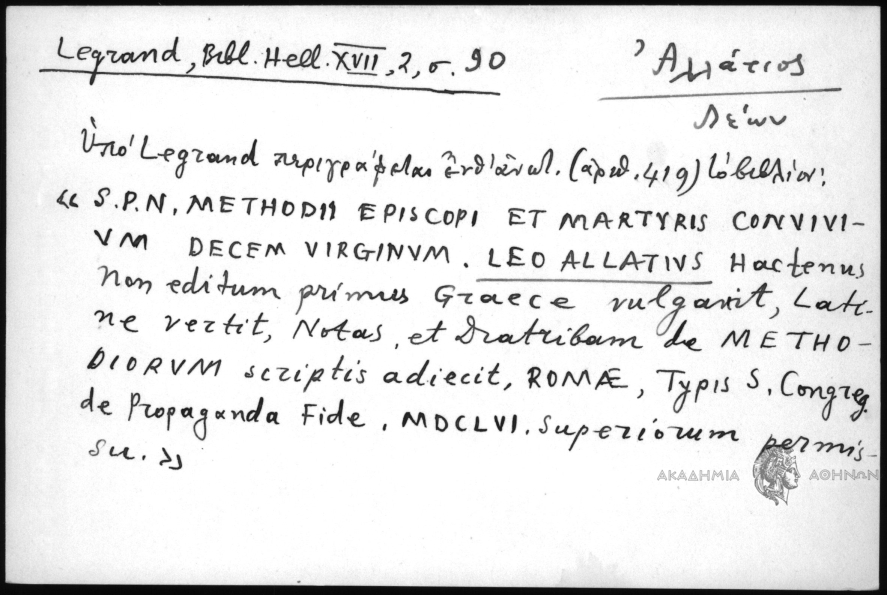 Legrand, Bibl. Hell. XVII, 2, σ. 90
Ἀλλάτιος
Λέων
Ὑπὸ Legrand περιγράφεται (ἀριθ. 419) τὸ βιβλίον:
« S.P.N. METHODII EPISCOPI ET MARTYRIS CONVIVI-
VM DECEM VIRGINVM. LEO ALLATIVS Hactenus
Non editum primus Graece vulgavit, Lati-
ne vertit, Notas, et Diatribam de METHO-
DIORVM scriptis adiecit, ROMÆ, Typis S. Congreg.
de Propaganda Fide. MDCLVI. Superiorum permis-
su. »
ΑΚΑΔΗΜΙΑ ΑΘΗΝΩΝ